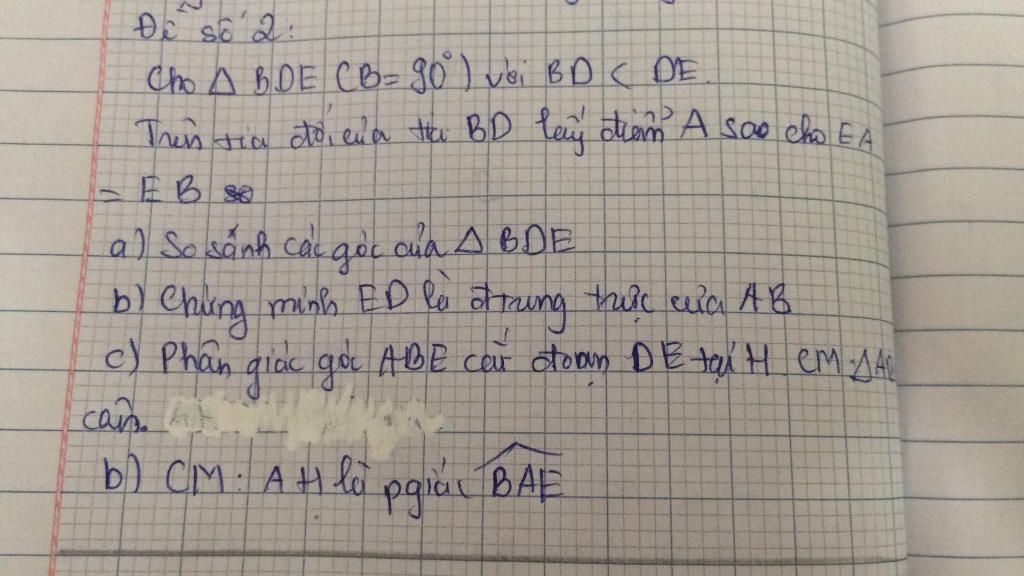 Đề số 2:
Cho Δ BDE (B=90°) với BD < DE.
Trên tia đối của tia BD lấy điểm A sao cho EA
= EB
a) So sánh các góc của Δ BDE
b) Chứng minh ED là đtrung trực của AB
c) Phân giác góc ABE cắt đoạn DE tại H CM Δ
cân.
b) CM: AH là pgiác BAE